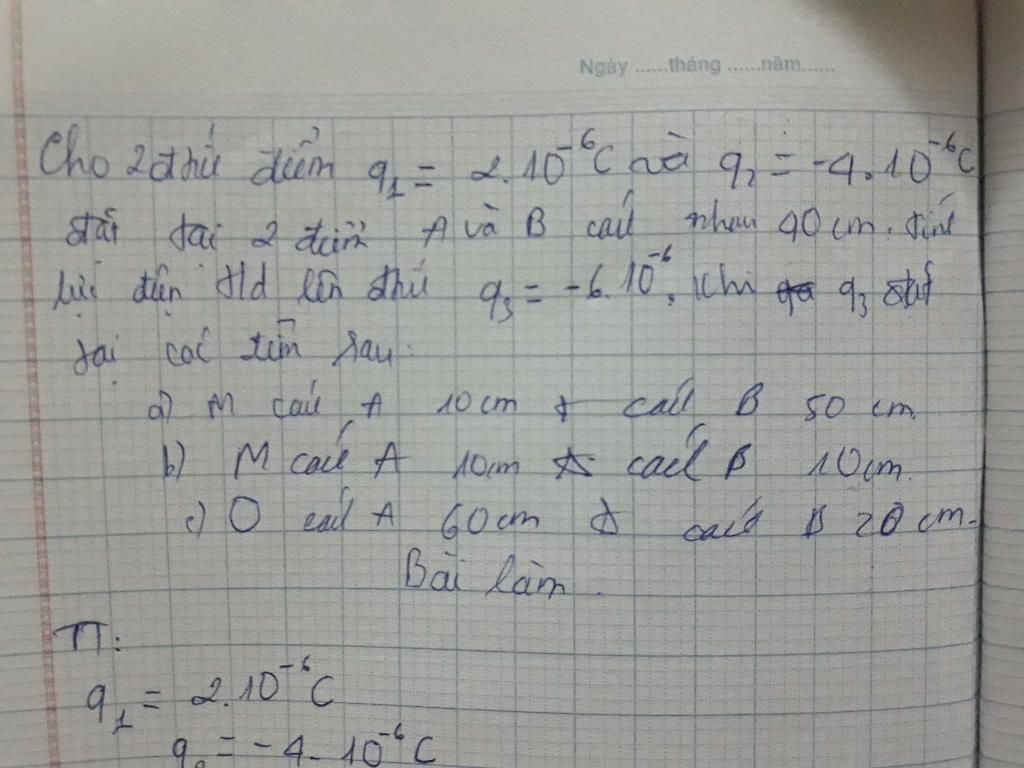 Ngày ......tháng ......năm......
Cho 2 đthú điểm q₁ = 2.10⁻⁶C và q₂ = -4.10⁻⁶C
đặt tại 2 điểm A và B cách nhau 40 cm. tính
lực điện t/d lên đthú q₃ = -6.10⁻⁶. Khi q₃ đặt
tại các điểm sau:
a) M cách A 10cm & cách B 50 cm.
b) M cách A 10cm & cách B 10cm.
c) O cách A 60cm & cách B 20 cm.
Bài làm.
TT:
q₁ = 2.10⁻⁶C
q₂ = -4.10⁻⁶C